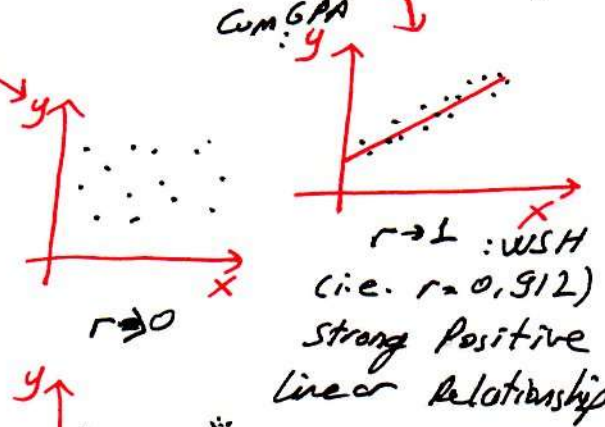 Cum GPA
:
y
y
x
x
r→0
r→1 : WSH
(i.e. r=0,912)
Strong Positive
linear Relationship
y